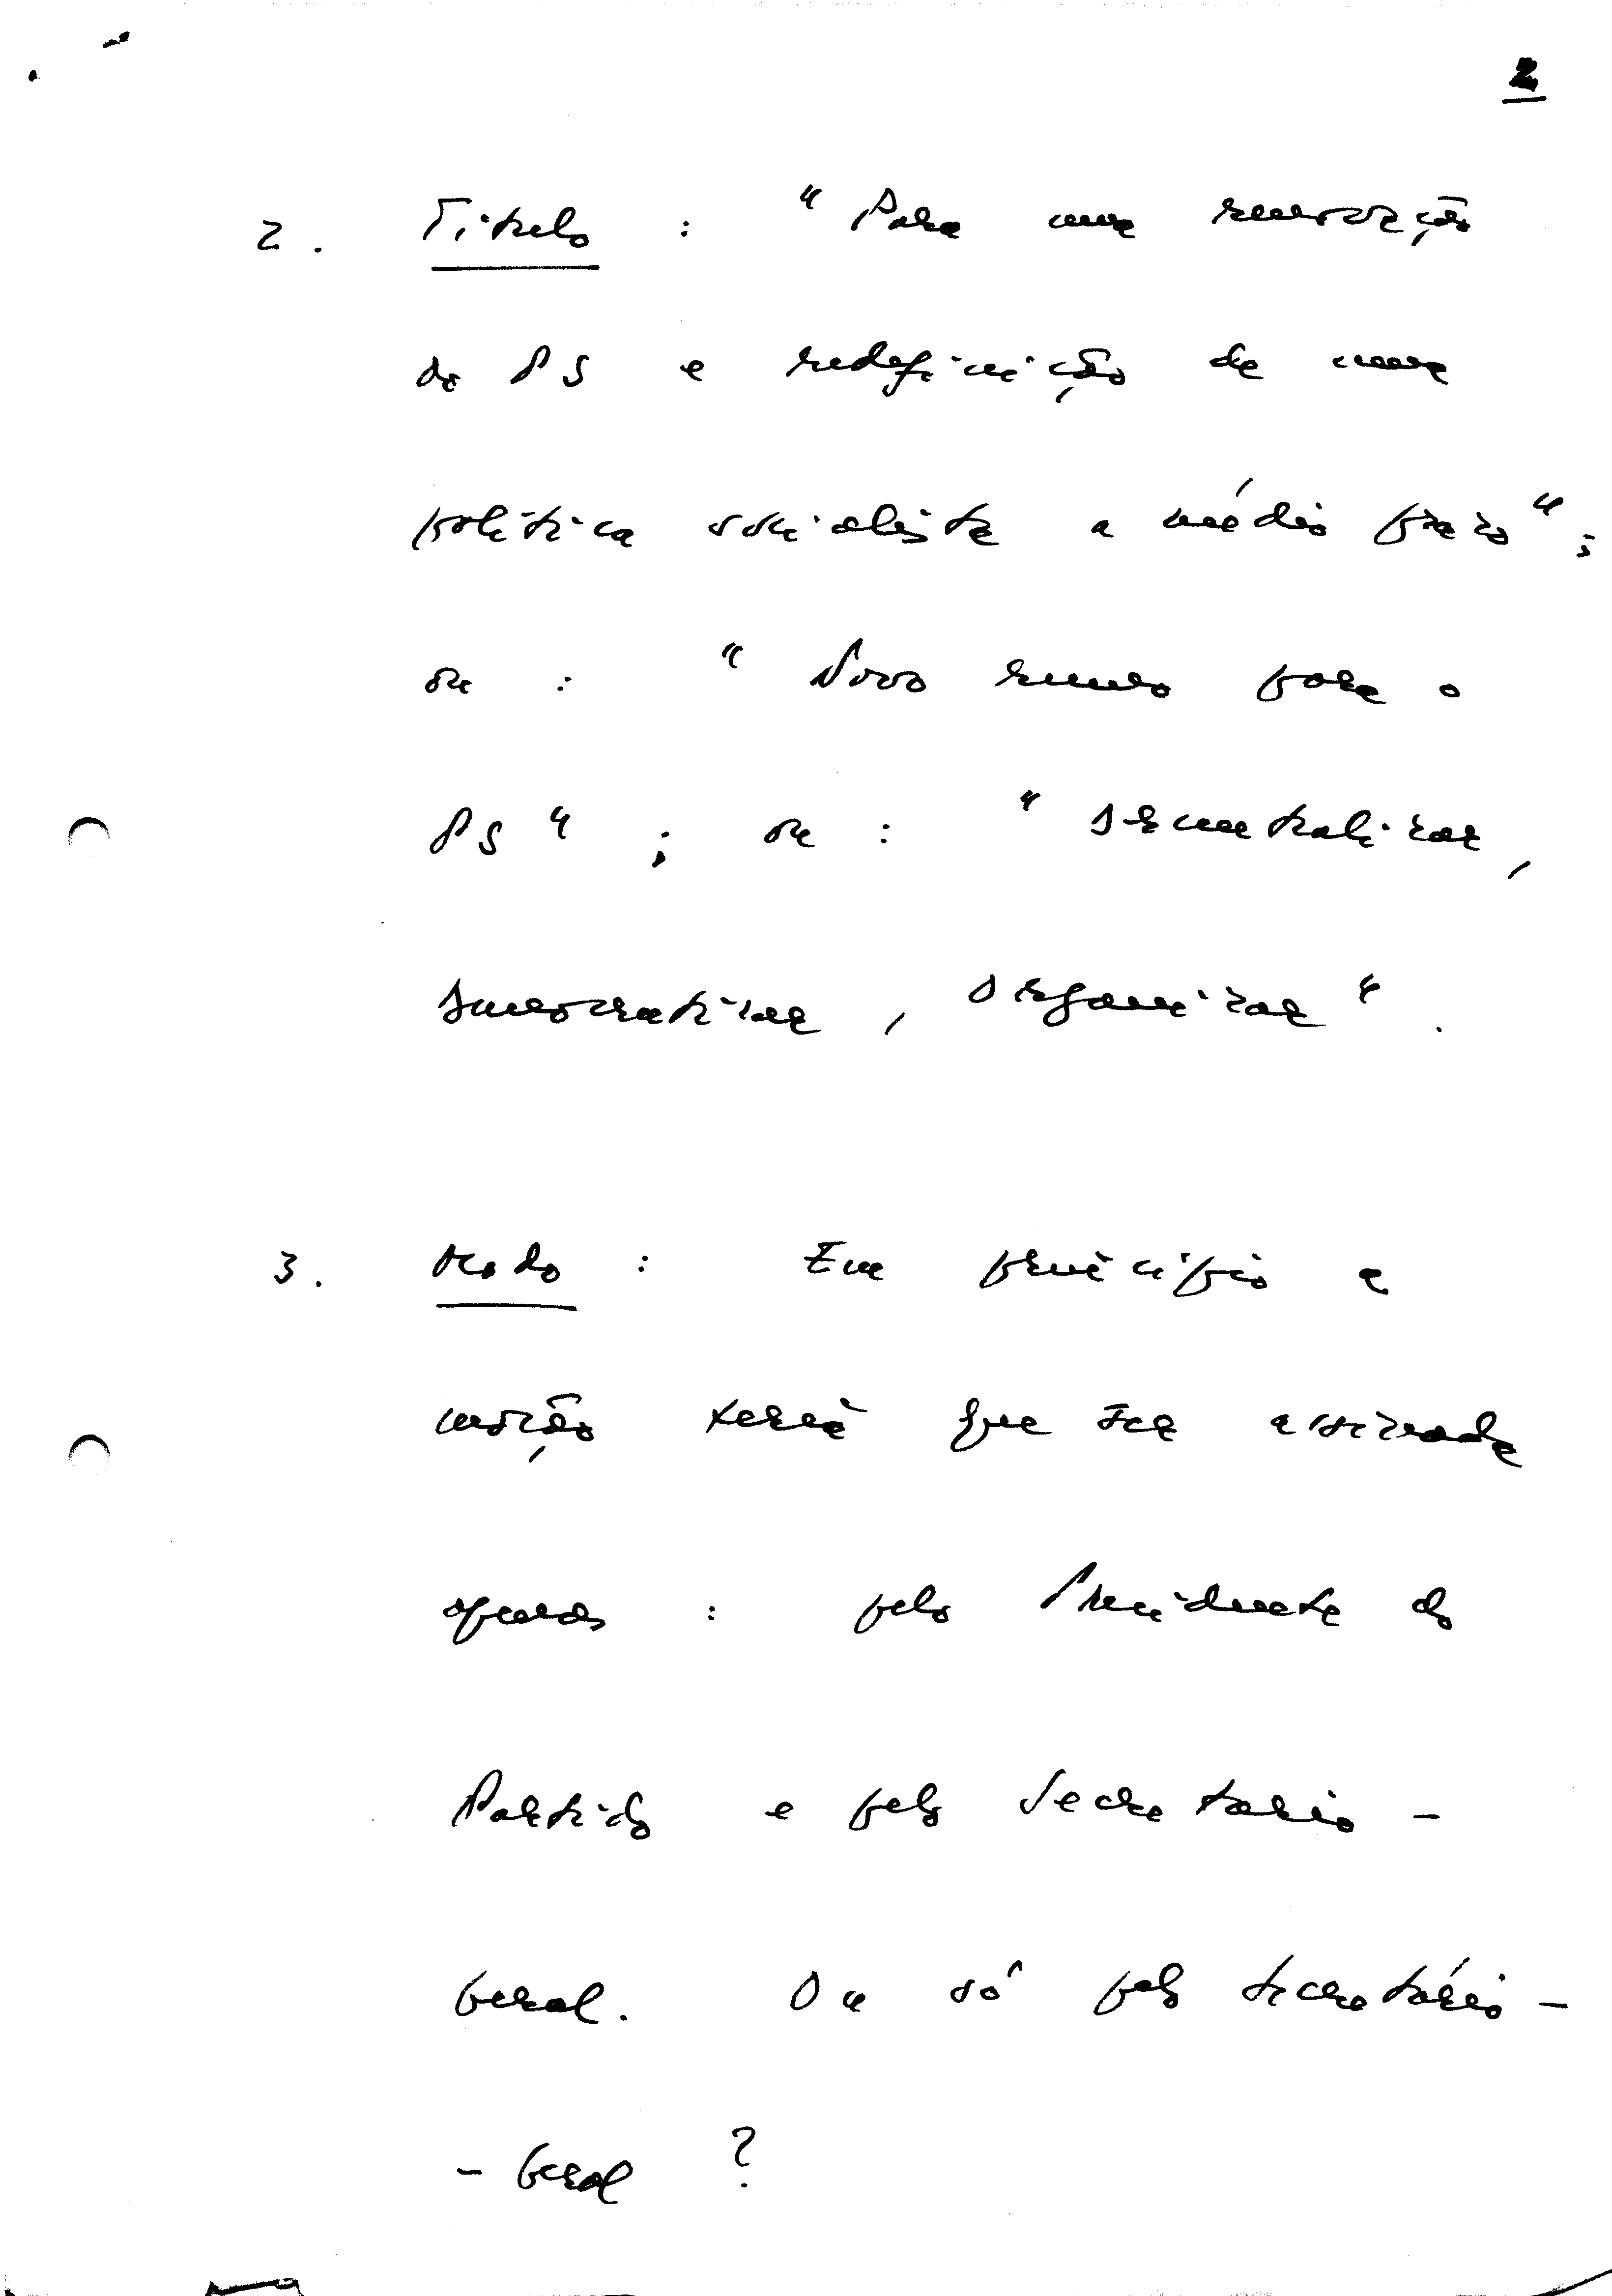 2
2. Título : "Para uma renovação
do PS e redefinição de uma
política socialista a médio prazo";
ou : "Novo rumo para o
PS"; ou : "Descentralizar,
democratizar, organizar".
3. Modo : Em princípio a
moção terá que ser assinada
apenas : pelo Presidente do
Partido e pelo Secretário -
Geral. Ou só pelo Secretário -
- Geral ?